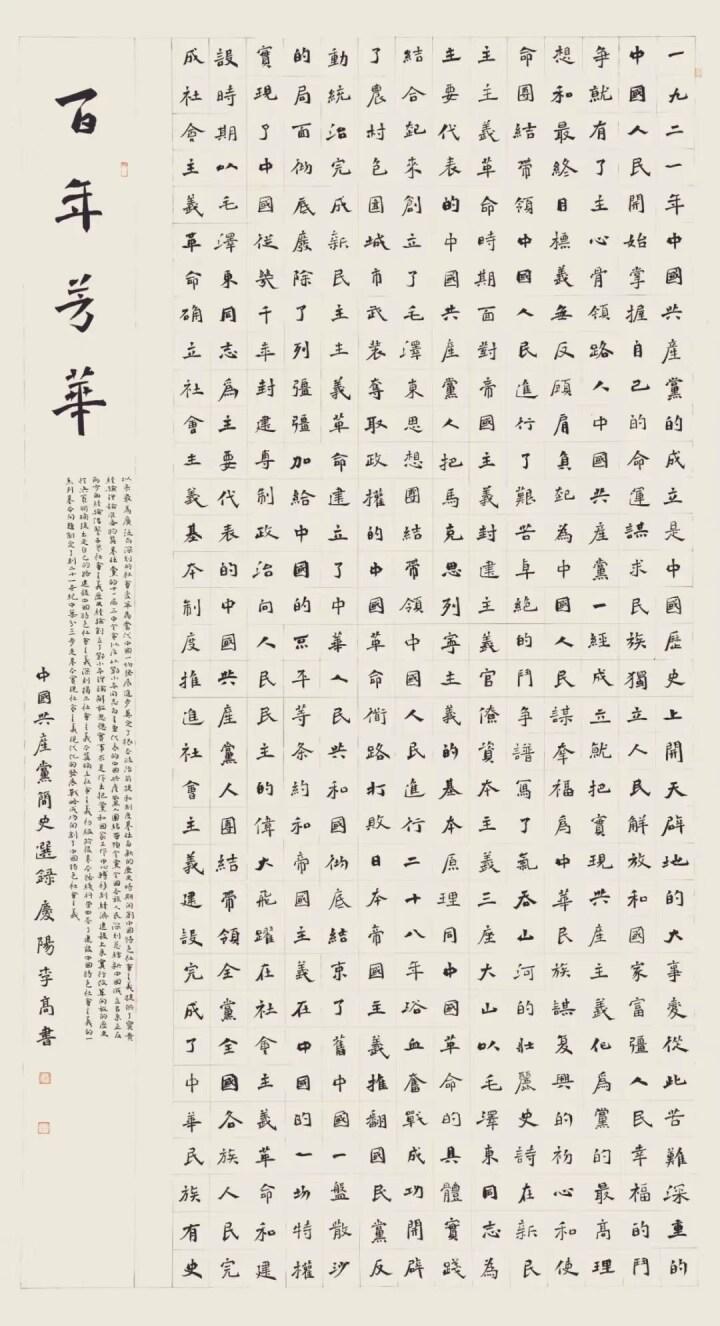 一九二一年中國共產黨的成立是中國歷史上開天辟地的大事變從此苦難深重的
中國人民開始掌握自己的命運謀求民族獨立人民解放和國家富彊人民幸福的鬥
爭就有了主心骨領路人中國共產黨一經成立就把實現共產主義化爲黨的最高理
想和最終目標義無反顧肩負起為中國人民謀幸福爲中華民族謀复興的初心和使
命團結帶領中國人民進行了艱苦卓絕的鬥爭譜寫了氣吞山河的壯麗史詩在新民
主主義革命時期面對帝國主義封建主義官僚資本主義三座大山以毛澤東同志為
主要代表的中國共產黨人把馬克思列寧主義的基本原理同中國革命的具體實踐
結合起來創立了毛澤東思想團結帶領中國人民進行二十八年浴血奮戰成功開辟
了農村包圍城市武裝奪取政權的中國革命衜路打敗日本帝國主義推翻國民黨反
動統治完成新民主主義革命建立了中華人民共和國徹底結束了舊中國一盤散沙
的局面徹底廢除了列彊彊加給中國的不平等条約和帝國主義在中國的一切特權
實現了中國從幾千年封建專制政治向人民民主的偉大飛躍在社會主義革命和建
設時期以毛澤東同志爲主要代表的中國共產黨人團結帶領全黨全國各族人民完
成社會主義革命确立社會主義基本制度推進社會主義建設完成了中華民族有史
百年芳華
以来最為廣泛而深刻的社會變革為當代中國一切發展進步奠定了根本政治前提和制度
中國共產黨簡史選録慶陽李髙書